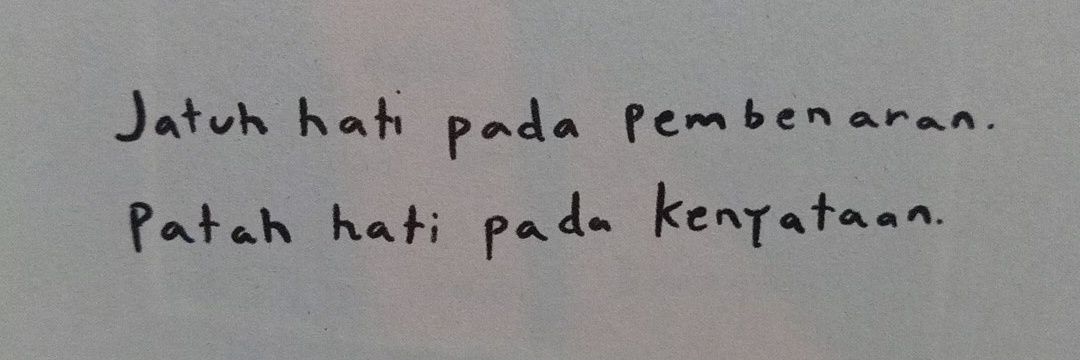 Jatuh hati pada pembenaran.
Patah hati pada kenyataan.